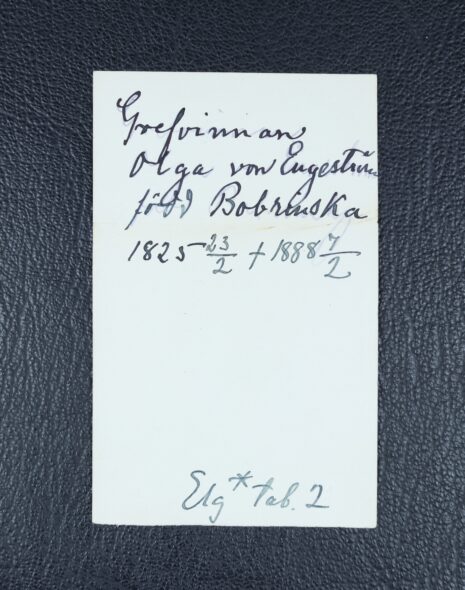 Grefvinnan
Olga von Engeström
född Bobrinska
1825 23/2 † 1888 7/2
Elg * tab. 2